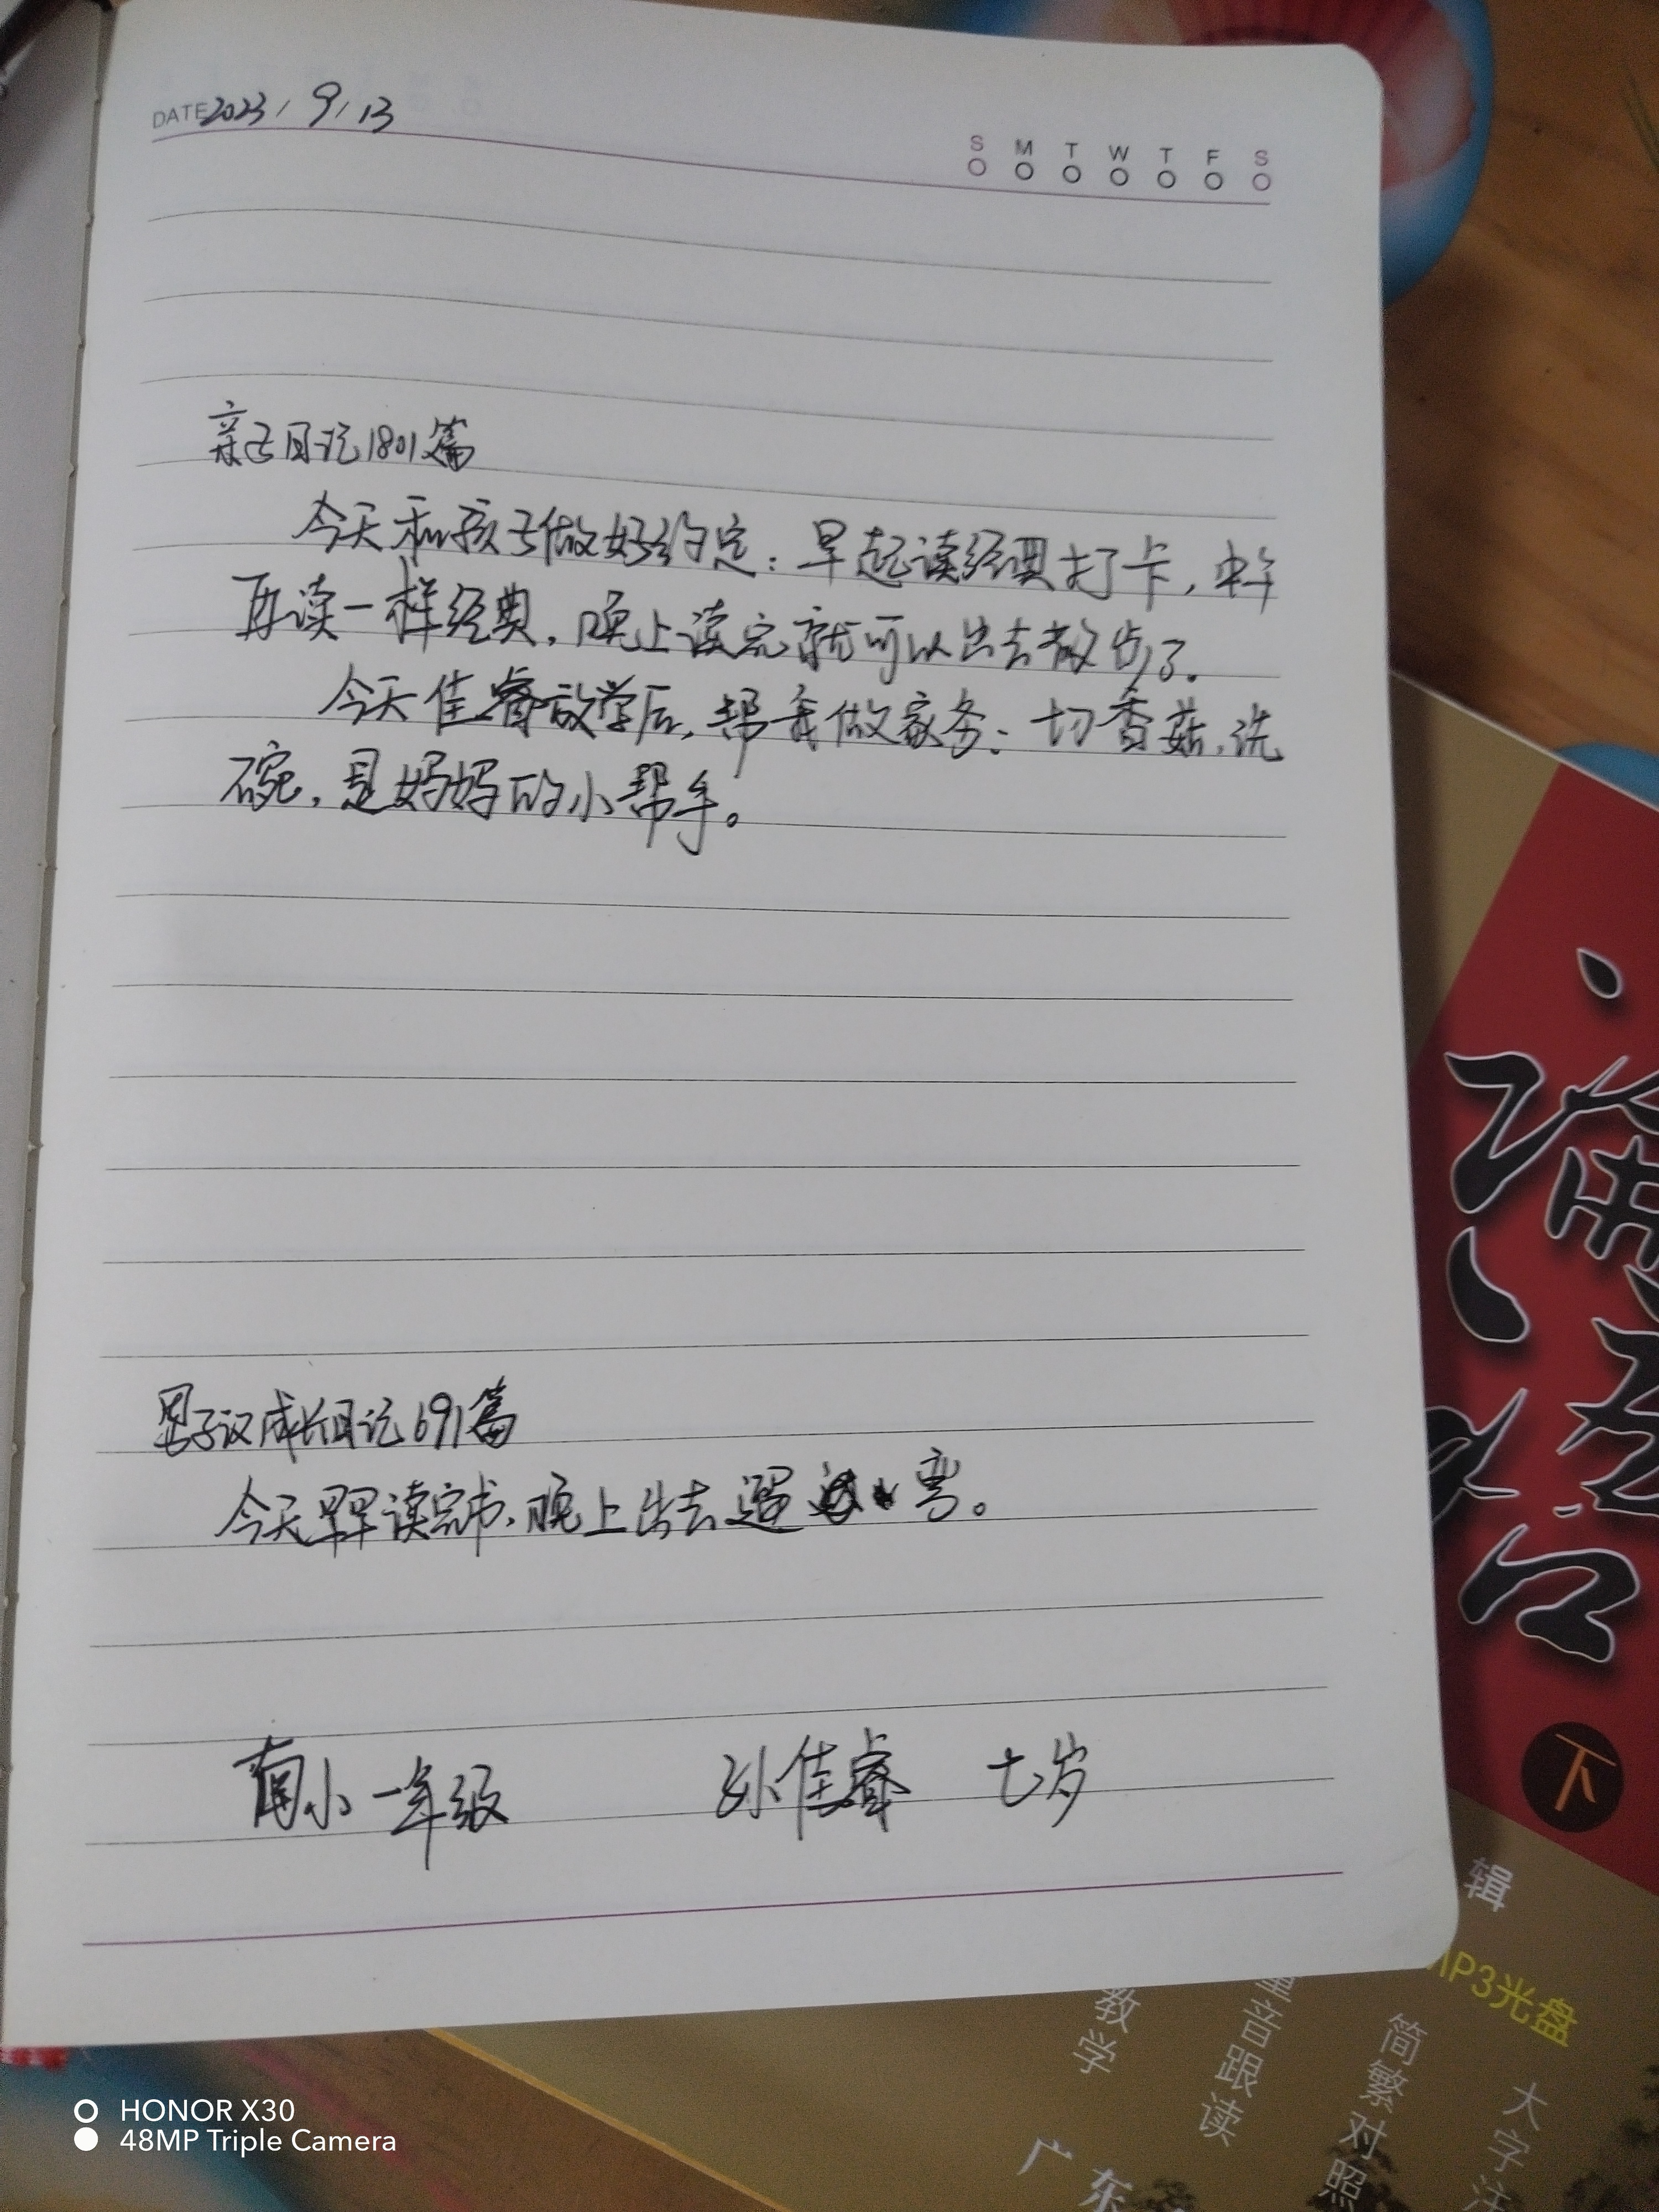 DATE 2023 / 9 / 13
S M T W T F S
亲子日记1801篇
今天和孩子做好约定：早起读经典打卡，中午
再读一样经典，晚上读完就可以出去散步了。
今天佳睿放学后，帮我做家务：切香菇，洗
碗，是妈妈的小帮手。
男子汉成长日记691篇
今天早早读完书，晚上出去遛弯。
南小一年级 孙佳睿 七岁
诵
下
辑
MP3光盘
教学
音跟读
简繁对照
大字注
广东
HONOR X30
48MP Triple Camera